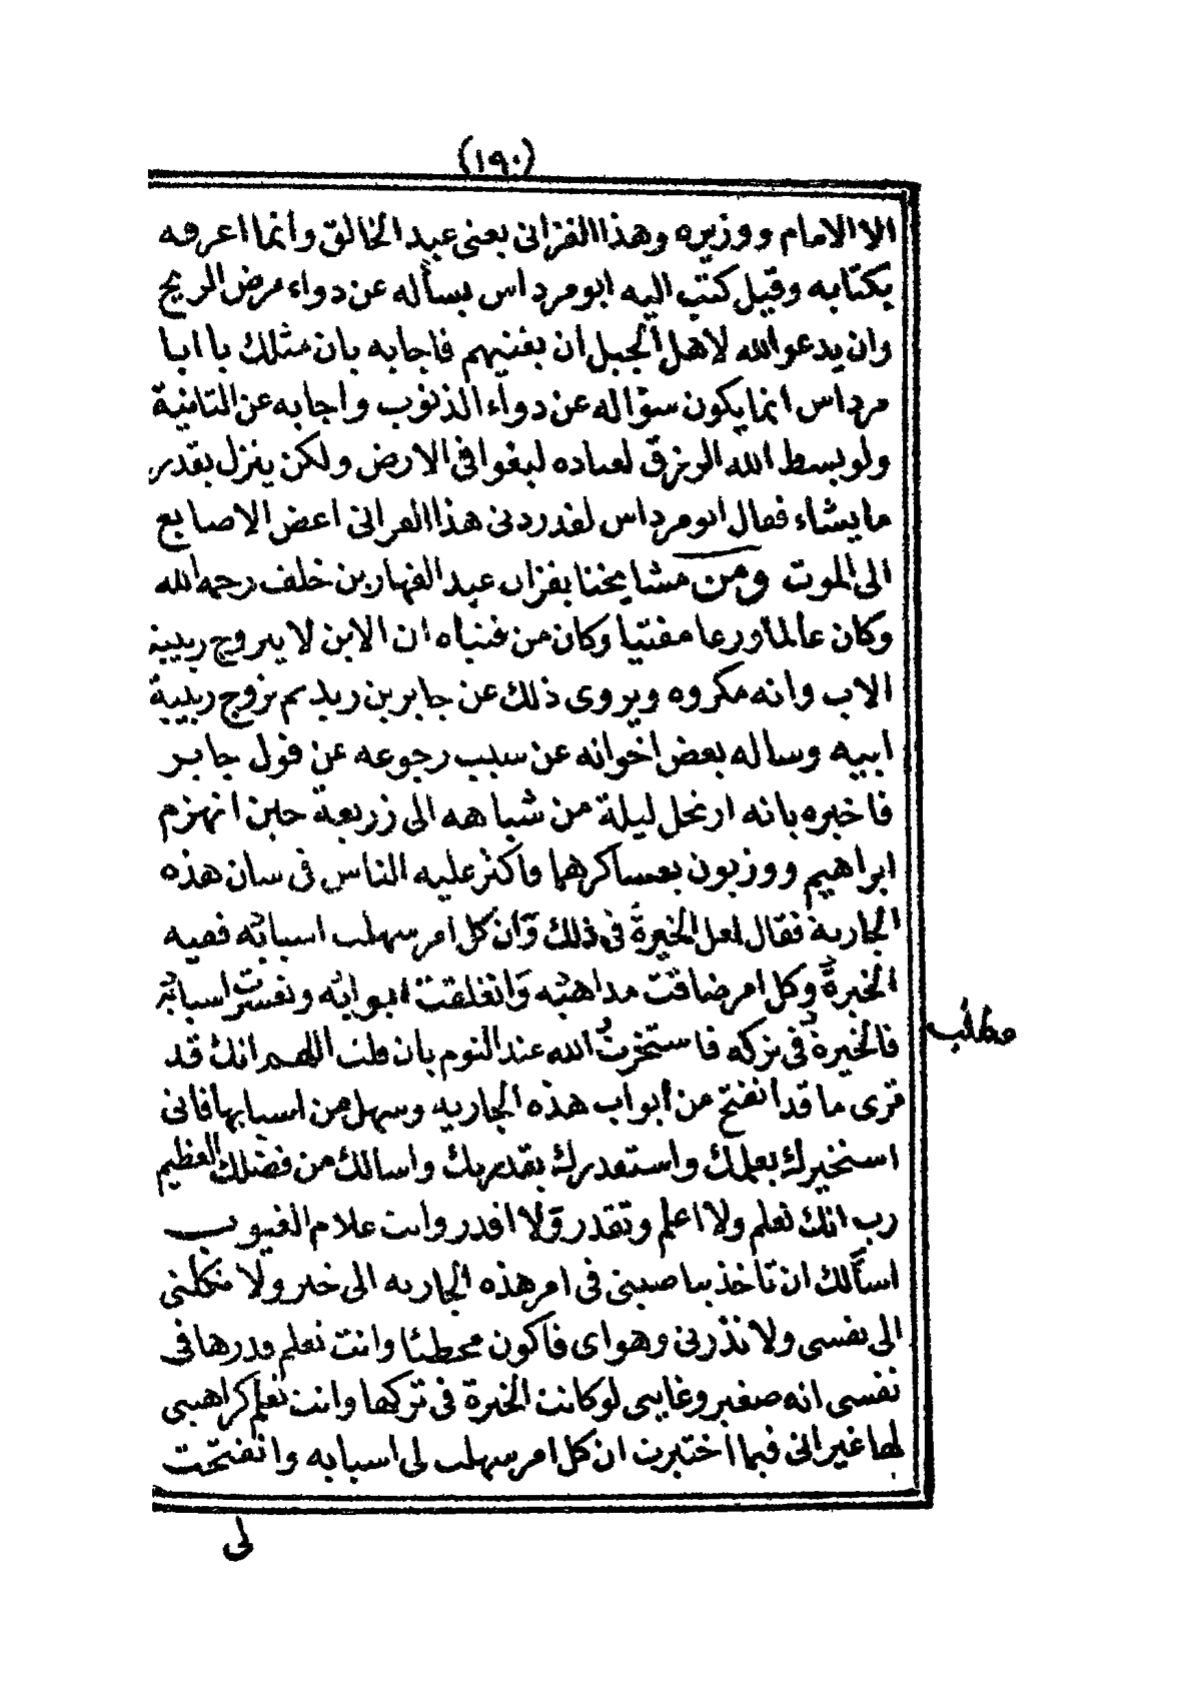 (١٩٠)
الا الامام ووزيره وهذا الفزانى يعنى عبد الخالق وانما اعرفه
بكتابه وقيل كتب اليه ابو مرداس يسأله عن دواء مرض الريح
وان يدعو الله لاهل الجبل ان يغنيهم فاجابه بان مثلك يا ابا
مرداس انما يكون سؤاله عن دواء الذنوب واجابه عن الثانية
ولو بسط الله الرزق لعباده لبغوا فى الارض ولكن ينزل بقدر
ما يشاء فقال ابو مرداس لقد ردنى هذا الفزانى اعض الاصابع
الى الموت ومن مشايخنا بفزان عبد القهار بن خلف رحمه الله
وكان عالما ورعا مفتيا وكان من فتياه ان الابن لا يتزوج ربيبة
الاب وانه مكروه ويروى ذلك عن جابر بن زيد ثم تزوج ربيبة
ابيه وساله بعض اخوانه عن سبب رجوعه عن قول جابر
فاخبره بانه ارتحل ليلة من شباهه الى زريعة حين انهزم
ابراهيم ووزبون بعساكرهما واكثر عليه الناس فى شان هذه
الجارية فقال لعل الخيرة فى ذلك وان كل امر سهلت اسبابه ففيه
الخيرة وكل امر ضاقت مذاهبه وانغلقت ابوابه وتعسرت اسبابه
فالخيرة فى تركه فاستخرت الله عند النوم بان قلت اللهم انك قد
مطلب
ترى ما قد انفتح من ابواب هذه الجارية وسهل من اسبابها فانى
استخيرك بعلمك واستقدرك بقدرتك واسالك من فضلك العظيم
رب انك تعلم ولا اعلم وتقدر ولا اقدر وانت علام الغيوب
اسألك ان تأخذ بناصيتى فى امر هذه الجارية الى خير ولا تكلنى
الى نفسى ولا تذرنى وهواى فاكون مخطئا وانت تعلم قدرها فى
نفسى انه صغير وغايتى لو كانت الخيرة فى تركها وانت تعلم كراهيتى
لها غير انى فيما اختبرت ان كل امر سهلت لى اسبابه وانفتحت
لى